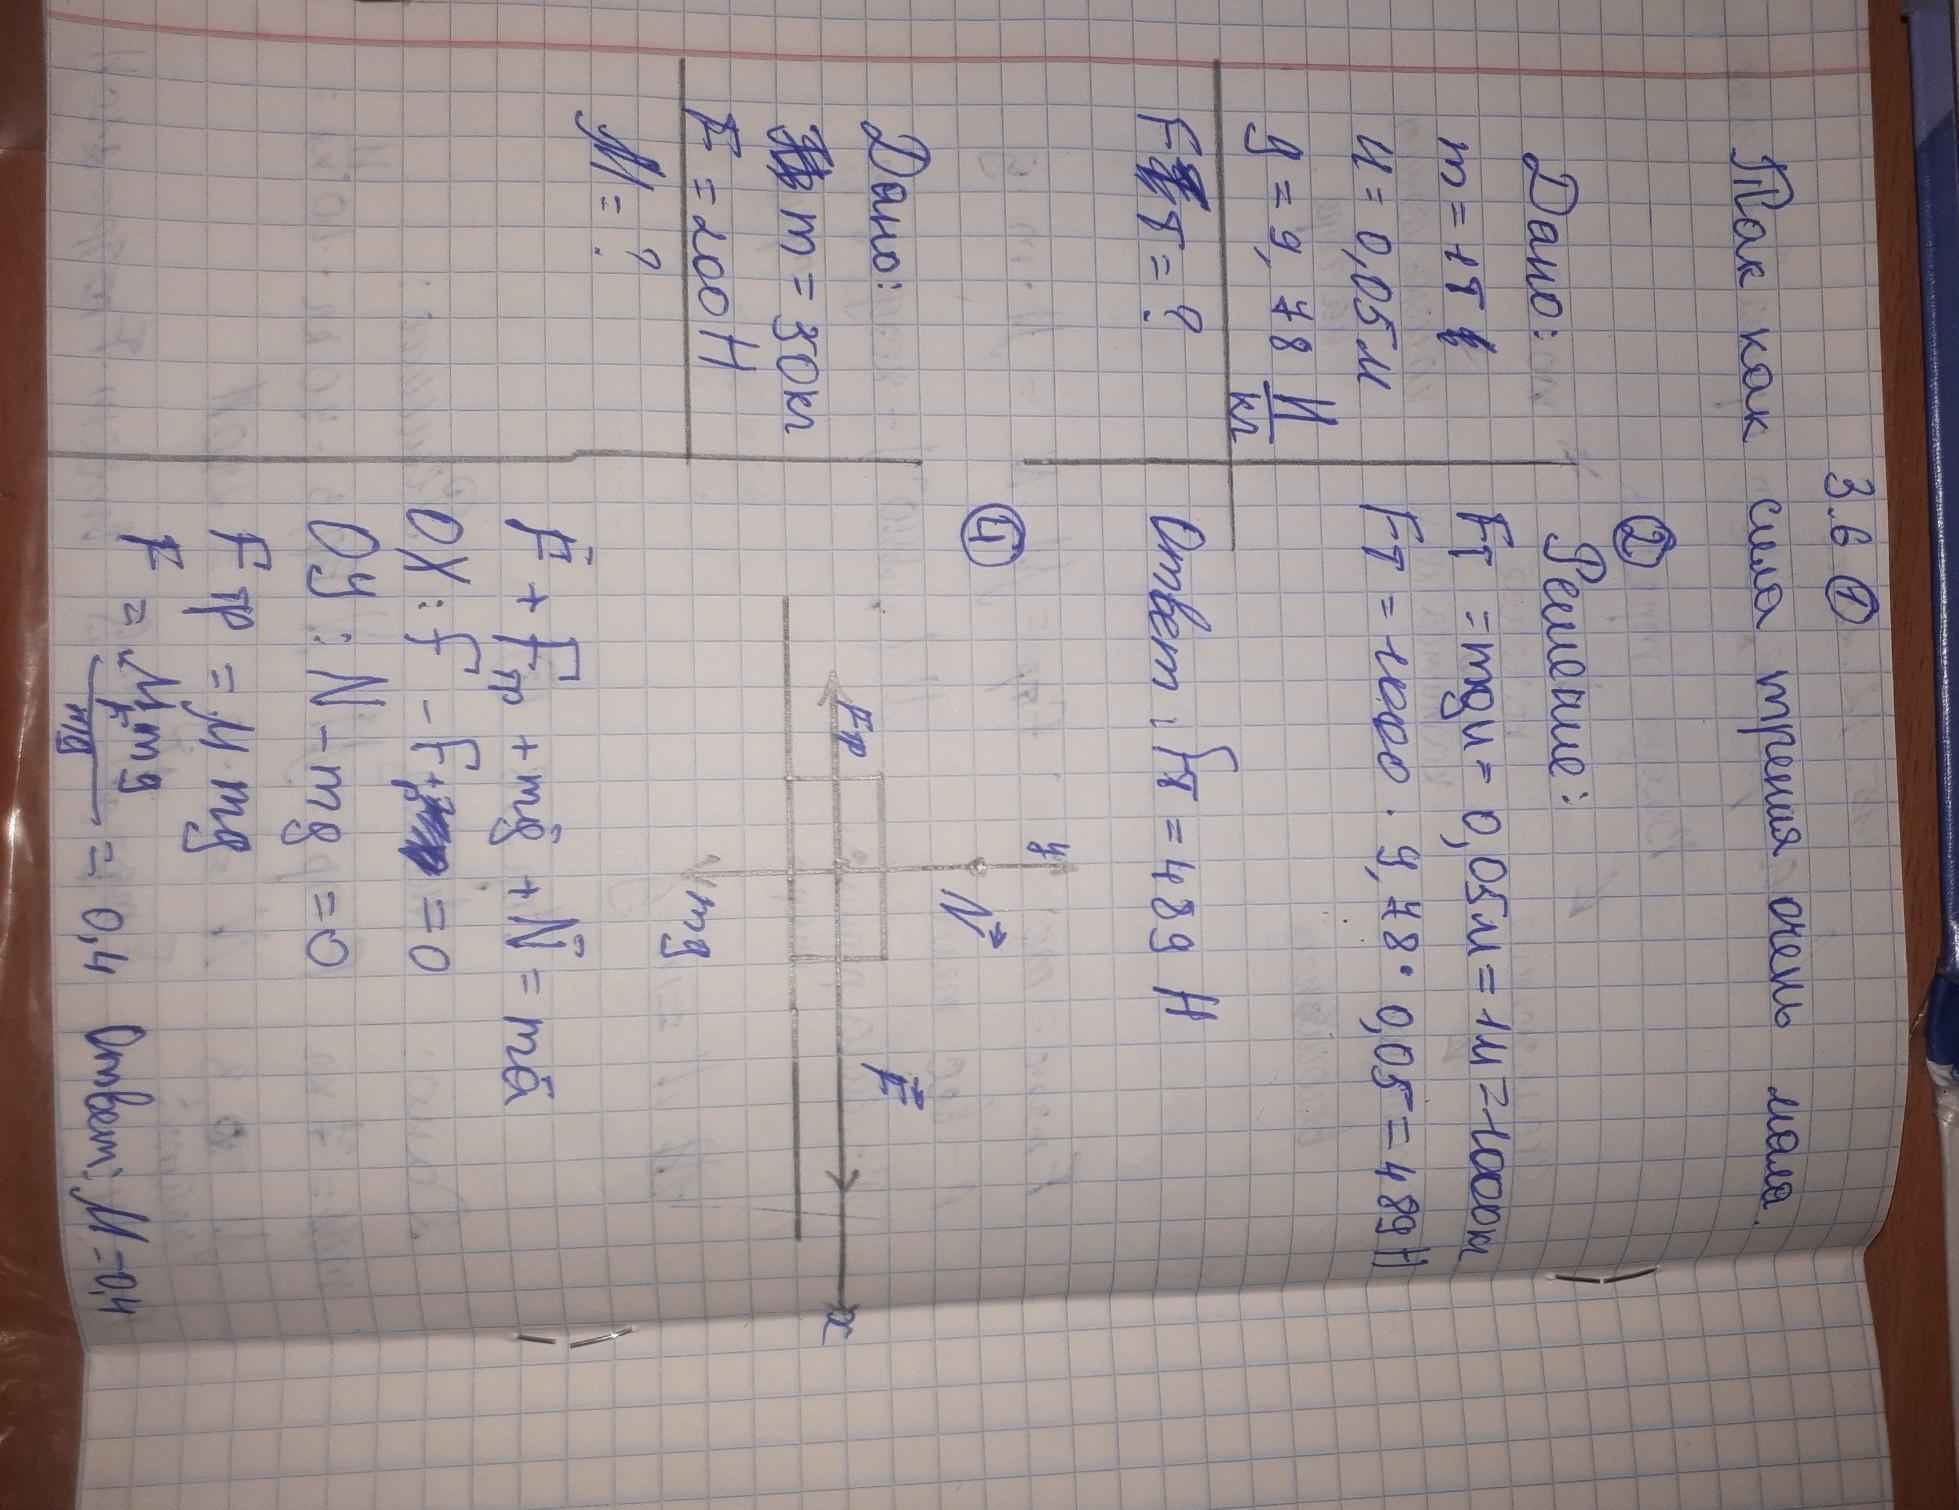 З.в ①
Так как сила трения очень мала.
②
Дано:
m = 1т
μ = 0,05м
g = 9,78 Н/кг
Fт = ?
Решение:
Fт = mgμ = 0,05м = 1м = 1000кг
Fт = 1000 · 9,78 · 0,05 = 489Н
Ответ: Fт = 489 Н
④
Дано:
m = 50кг
F = 200Н
М = ?
y
N
Fтр
F
x
mg
F + Fтр + mg + N = ma
OX: F - Fтр = 0
Oy: N - mg = 0
Fтр = М mg
F = М mg
F/mg = 0,4 Ответ: М = 0,4